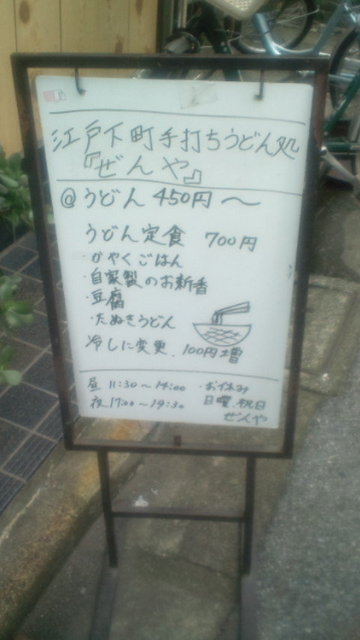 江戸下町手打ちうどん処
『ぜんや』
@うどん 450円〜
うどん定食 700円
・かやくごはん
・自家製のお新香
・豆腐
・たぬきうどん
冷しに変更、100円増
昼 11:30〜14:00
夜 17:00〜19:30
・お休み
日曜、祝日
ぜんや